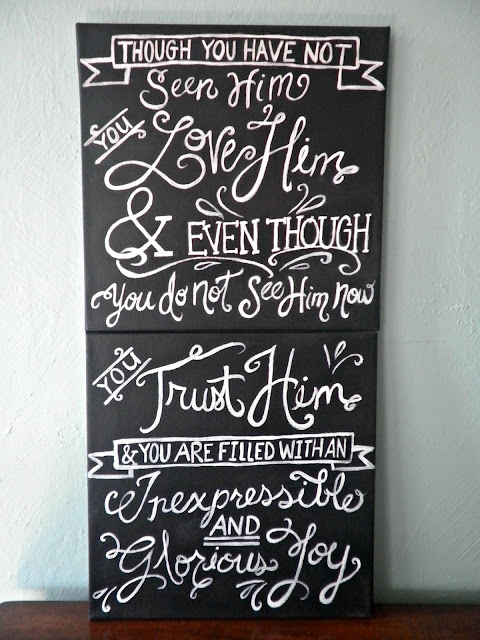 THOUGH YOU HAVE NOT
Seen Him
YOU Love Him
& EVEN THOUGH
You do not See Him now
YOU Trust Him
& YOU ARE FILLED WITH AN
Inexpressible
AND
Glorious Joy